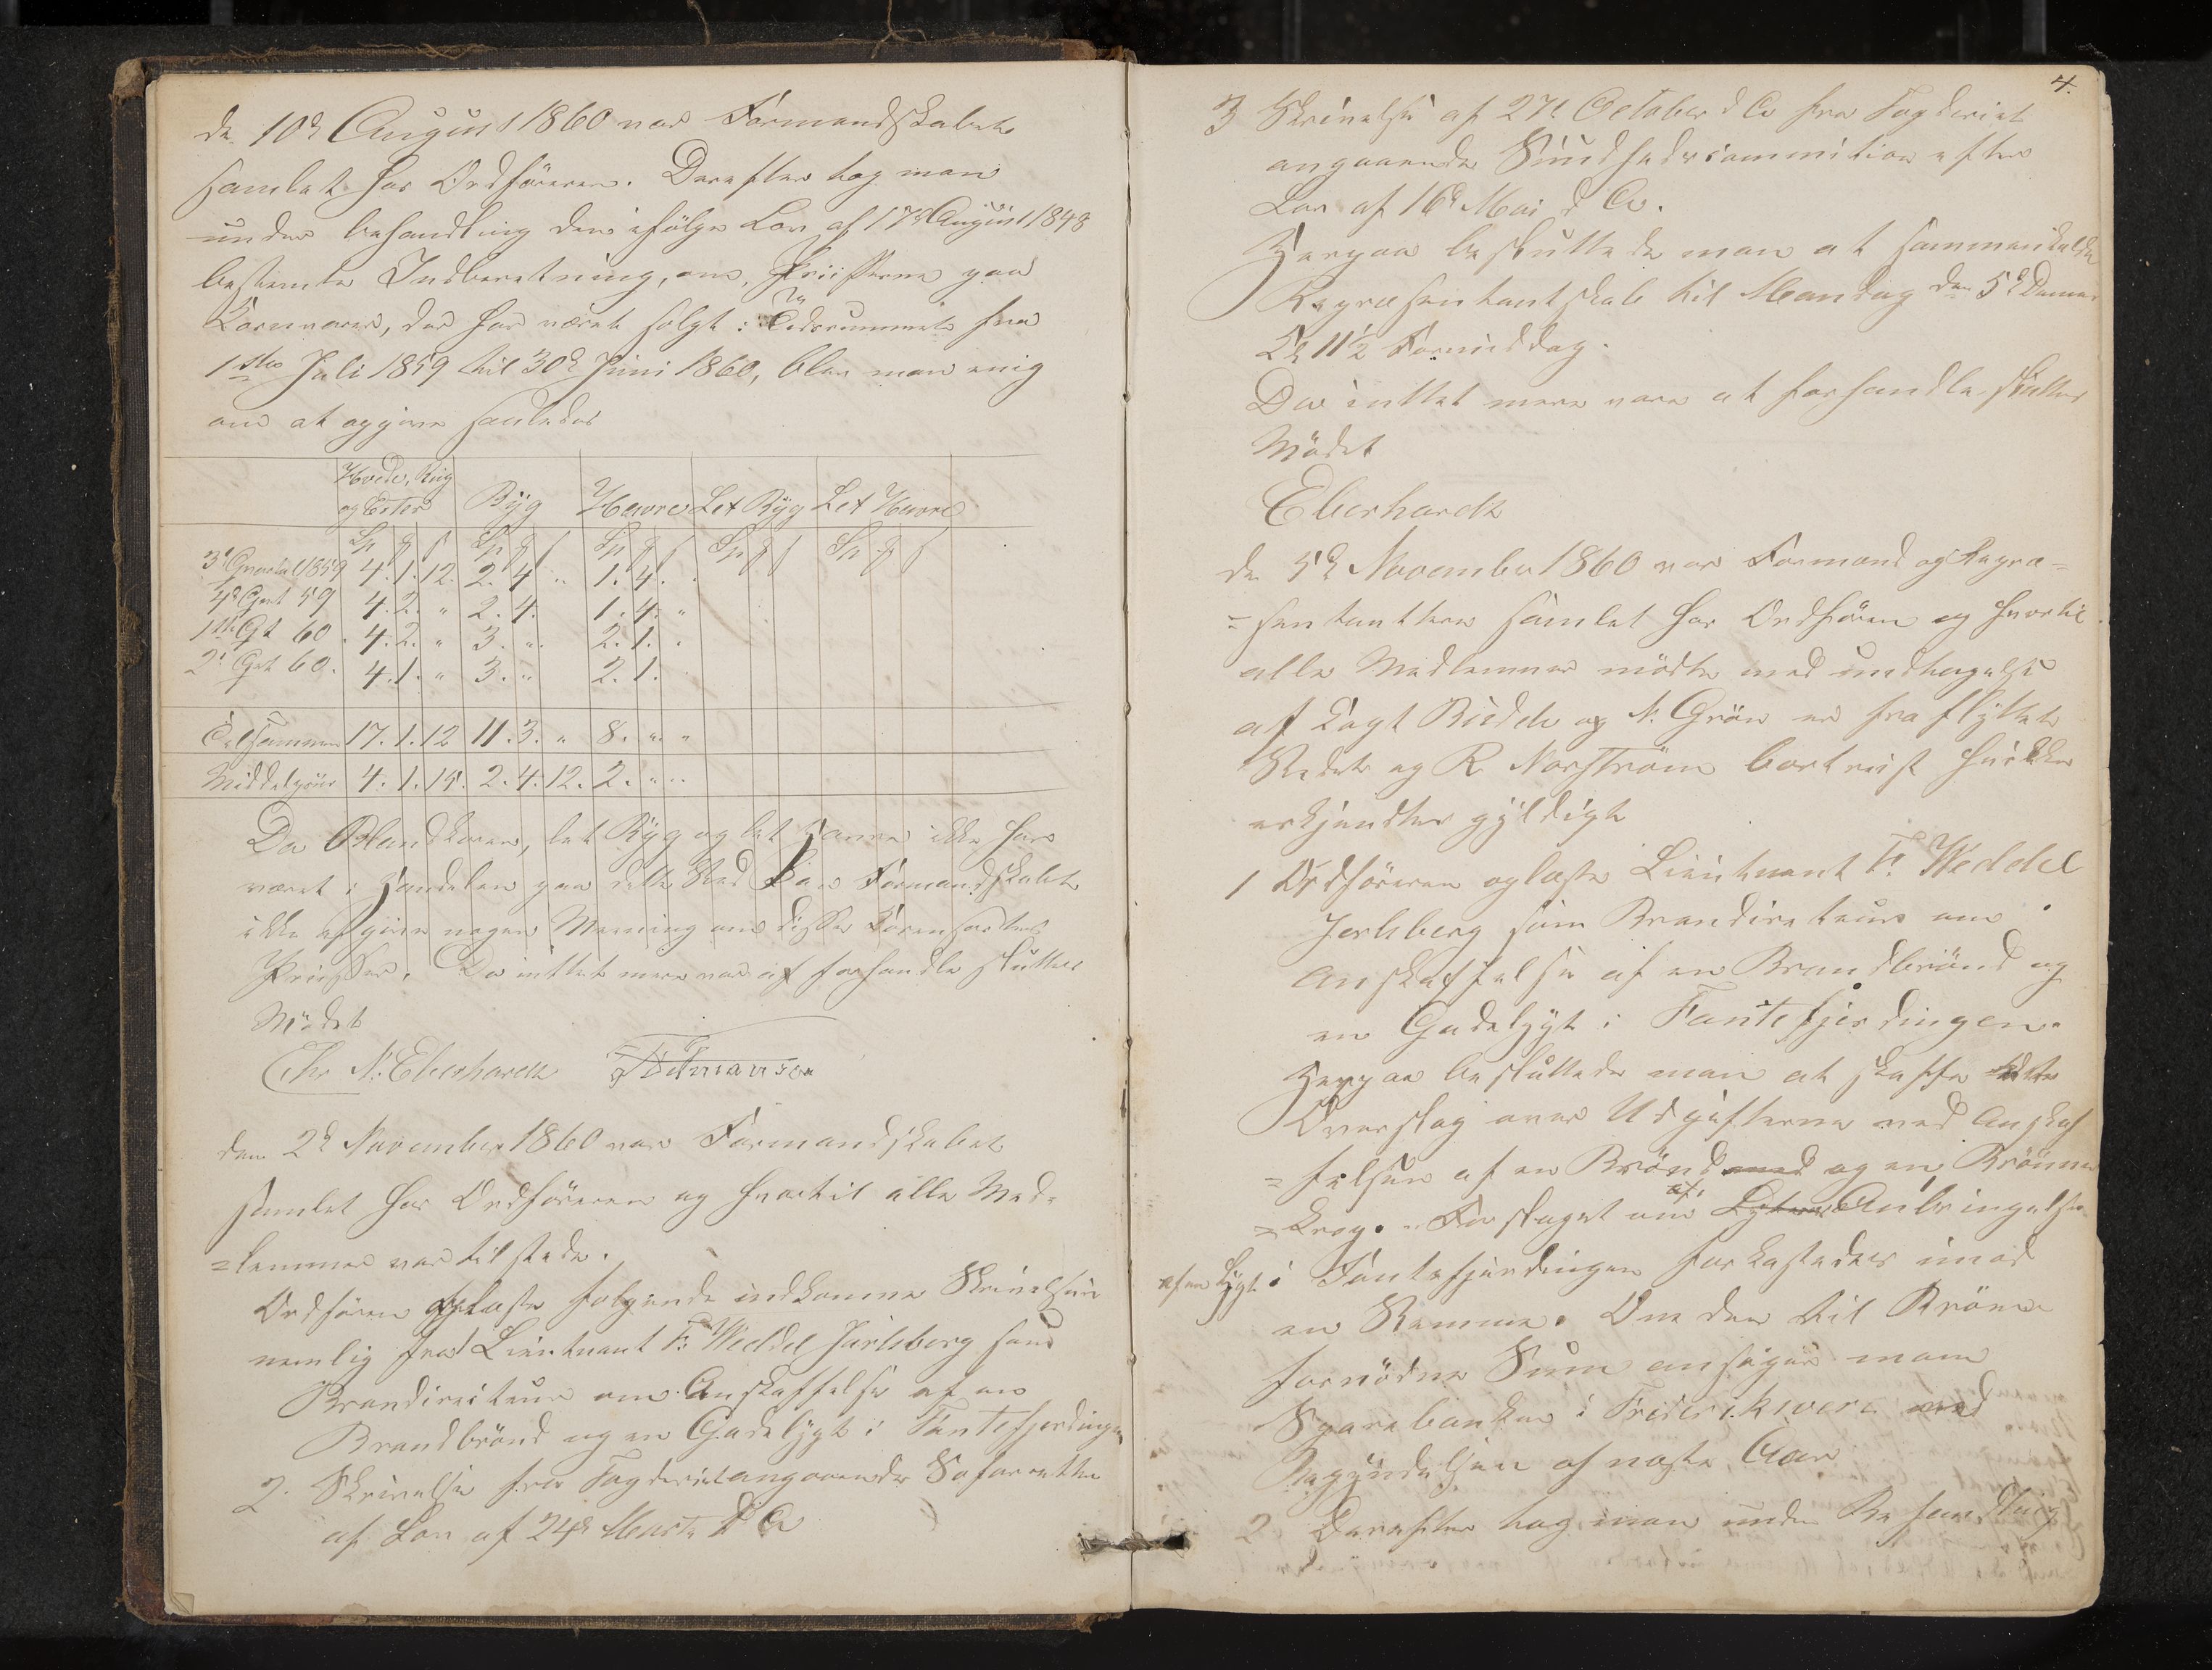 de 10d August 1860 var Formandskabet
samlet hos Ordföreren. Derefter tog man
under behandling den ifölge Lov af 17de August 1848
bestemte Indberetning, om Priiserne paa
Kornvarer, der har været solgt i Tidsrummet fra
1ste Juli 1859 til 30d Juni 1860, blev man enig
om at opgive saaledes
Hvede, Rug og Erter Byg Havre Let Byg Let Havre
Sp ß Sp ß Sp ß Sp ß Sp ß
3d Qvartal 1859 4. 1. 12. 2. 4 " 1. 4.
4d Qvt 59 4. 2. " 2. 4. 1. 4. "
1ste Qt 60. 4. 2. " 3. ". 2. 1. "
2d Qvt 60. 4. 1. " 3. " 2. 1.
Tilsammen 17. 1. 12 11. 3. " 8. " "
Middelpriis 4. 1. 15. 2. 4. 12. 2. " "
Da Blandkorn, let Byg og let Havre ikke har
været i Handelen paa dette Sted kan Formandskabet
ikke afgive nogen Mening om disse Kornsorters
Priiser. Da inttet mere var at forhandle sluttes
Mödet
Chr N. Eberhardt
den 2d November 1860 var Formandskabet
samlet hos Ordföreren og hvortil alle Med-
=lemmer var tilstede.
Ordfören oplæste følgende indkomne Skrivelser
nemlig fra Lieutnant F: Weddel Jarlsberg som
Brandirecteur om Anskaffelse af en
Brandbrönd og en Gadelygt i Fantefjerdingen
2. Skrivelse fra Fogderiet angaaende Söforrette
af Lov af 24d Marts d A
4.
3 Skrivelse af 27d October d A fra Fogderiet
angaaende Sundhedscommition efter
Lov af 16d Mai d A.
Herpaa besluttede man at sammenkalde
Repræsentantskab til Mandag den 5d Dennes
Kl 11½ Formiddag.
Da inttet mere vare at forhandle sluttes
Mödet
Eberhardt
de 5d November 1860 var Formænd og Repræ=
=sentantere samlet hos Ordfören og hvortil
alle Medlemmer mödte med undtagelse
af Kapt Budde og N. Grön er fraflyttet
Stedet og R Norström bortreist hvilket
erkjendtes gyldigt
1 Ordföreren oplæste Lieutnant F: Weddel
Jarlsberg som Brandirecteurs om
Anskaffelse af en Brandbrönd og
en Gadelygt i Fantefjerdingen.
Herpaa besluttede man at skaffe
Overslag over Udgifterne ved Anskaf
=felsen af en Brönd med og en Brönne
=krog. Forslaget om Lygtens Anbringelse
af en Lygt i Fantefjerdingen forkastedes imod
en Stemme. Om den til Brönne
fornödne Sum ansöges man
Sparebanken i Frideriksværn ved
Begyndelsen af næste Aar
2 Derefter tog man under Behandling